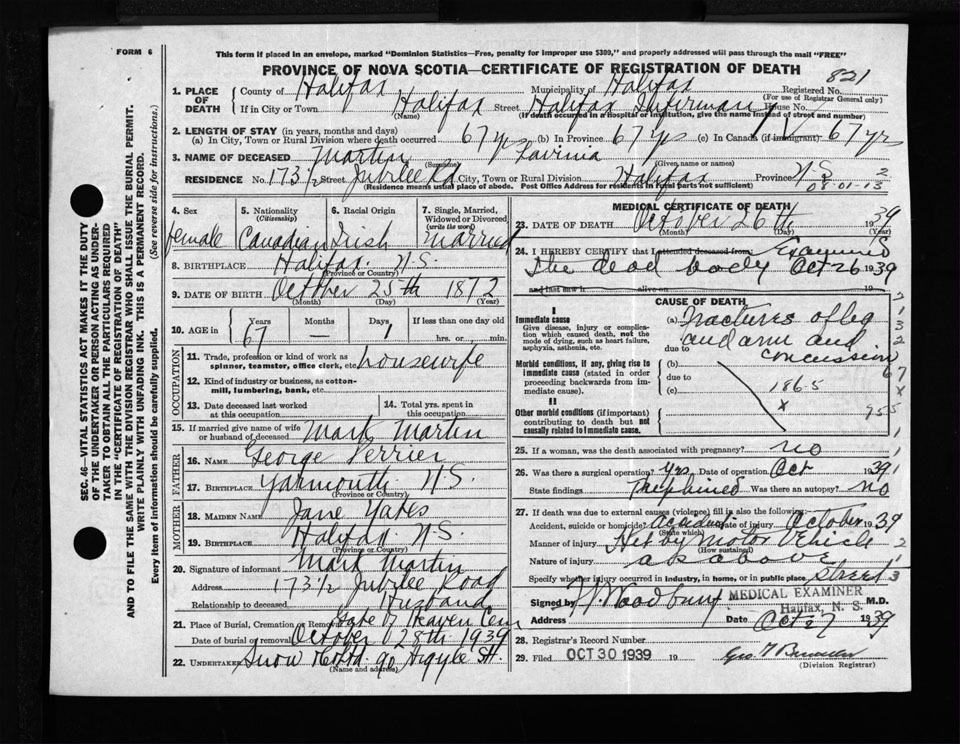 FORM 6
This form if placed in an envelope, marked "Dominion Statistics—Free, penalty for improper use $300," and properly addressed will pass through the mail "FREE"
PROVINCE OF NOVA SCOTIA—CERTIFICATE OF REGISTRATION OF DEATH
821
1. PLACE OF DEATH
County of Halifax Municipality of Halifax Registered No.
(For use of Registrar General only)
If in City or Town Halifax Street Halifax Infirmary House No.
(Name) (If death occurred in a hospital or institution, give the name instead of street and number)
2. LENGTH OF STAY (in years, months and days)
(a) In City, Town or Rural Division where death occurred 67 yrs (b) In Province 67 yrs (c) In Canada (if immigrant) 67 yrs
3. NAME OF DECEASED Martin Lavinia
(Surname) (Given name or names)
RESIDENCE No. 173½ Street Jubilee Rd City, Town or Rural Division Halifax Province N.S. 2
(Residence means usual place of abode. Post Office Address for residents in rural parts not sufficient) 08-01-13
4. Sex female
5. Nationality (Citizenship) Canadian
6. Racial Origin Irish
7. Single, Married, Widowed or Divorced (write the word) Married
8. BIRTHPLACE Halifax N.S.
(Province or Country)
9. DATE OF BIRTH October 25th 1872
(Month) (Day) (Year)
10. AGE in Years 67 Months — Days 1 If less than one day
hrs. or min.
OCCUPATION
11. Trade, profession or kind of work as spinner, teamster, office clerk, etc. housewife
12. Kind of industry or business, as cotton-mill, lumbering, bank, etc.
13. Date deceased last worked at this occupation
14. Total yrs. spent in this occupation
15. If married give name of wife or husband of deceased Mark Martin
FATHER
16. NAME George Verrier
17. BIRTHPLACE Yarmouth N.S.
(Province or Country)
MOTHER
18. MAIDEN NAME Jane Yates
19. BIRTHPLACE Halifax N.S.
(Province or Country)
20. Signature of informant Mark Martin
Address 173½ Jubilee Road
Relationship to deceased Husband
21. Place of Burial, Cremation or Removal Gate of Heaven Cem
Date of burial or removal October 28th 1939
22. UNDERTAKER Snow & Co Ltd. 90 Argyle St.
(Name and address)
MEDICAL CERTIFICATE OF DEATH
23. DATE OF DEATH October 26th 1939
(Month) (Day)
24. I HEREBY CERTIFY that I attended deceased from Examined
The dead body Oct 26 1939
and last saw h alive on 19
CAUSE OF DEATH
I
Immediate cause
Give disease, injury or complication which caused death, not the mode of dying, such as heart failure, asphyxia, asthenia, etc.
(a) Fractures of leg
and arm and
due to concussion
Morbid conditions, if any, giving rise to immediate cause (stated in order proceeding backwards from immediate cause).
(b)
due to
(c) 186.5
x
II
Other morbid conditions (if important) contributing to death but not causally related to immediate cause.
955
25. If a woman, was the death associated with pregnancy? no
26. Was there a surgical operation? Yes Date of operation Oct 1939
State findings Trephined Was there an autopsy? no
27. If death was due to external causes (violence) fill in also the following:
Accident, suicide or homicide? accident Date of injury October 1939
(State which)
Manner of injury Hit by Motor Vehicle
(How sustained)
Nature of injury as above
Specify whether injury occurred in industry, in home, or in public place. Street
Signed by M.D.
MEDICAL EXAMINER
Halifax, N. S.
Date Oct 27 1939
28. Registrar's Record Number
29. Filed OCT 30 1939 19
(Division Registrar)
SEC. 46—VITAL STATISTICS ACT MAKES IT THE DUTY
OF THE UNDERTAKER OR PERSON ACTING AS UNDERTAKER TO OBTAIN ALL THE PARTICULARS REQUIRED
IN THE "CERTIFICATE OF REGISTRATION OF DEATH"
AND TO FILE THE SAME WITH THE DIVISION REGISTRAR WHO SHALL ISSUE THE BURIAL PERMIT.
WRITE PLAINLY WITH UNFADING INK. THIS IS A PERMANENT RECORD.
Every item of information should be carefully supplied. (See reverse side for instructions.)